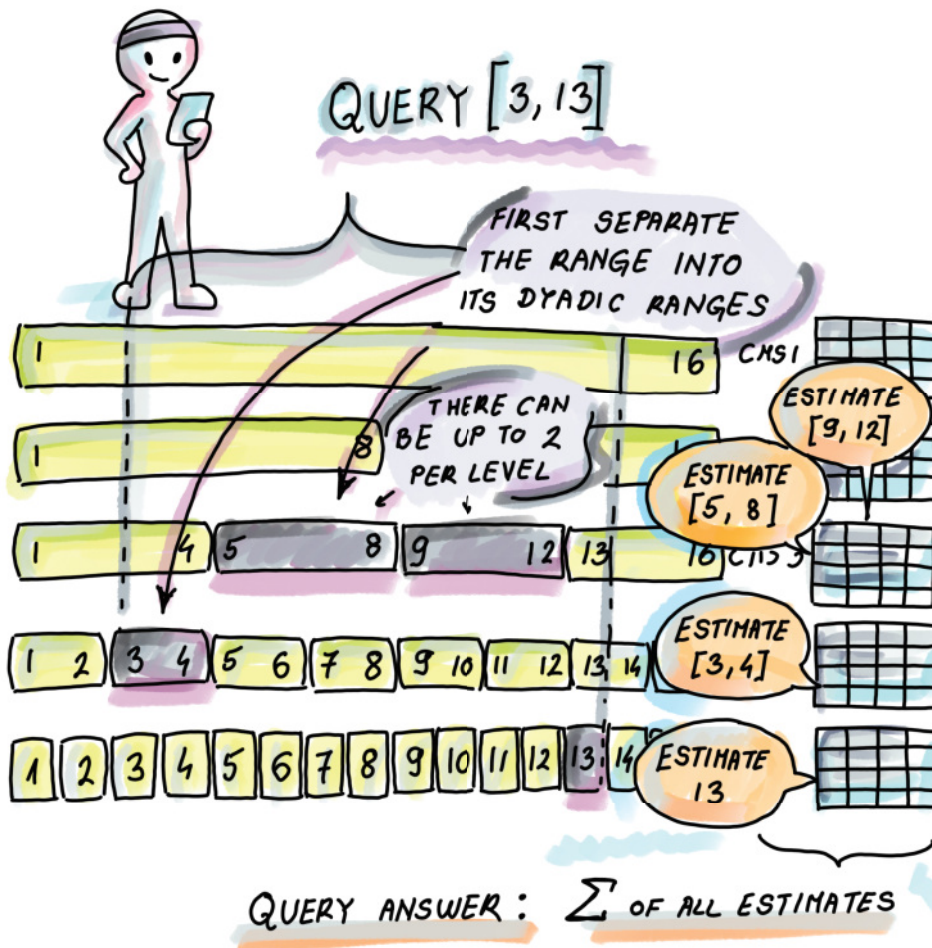 QUERY [3, 13]
FIRST SEPARATE
THE RANGE INTO
ITS DYADIC RANGES
1 16 CMS1
ESTIMATE
[9, 12]
THERE CAN
BE UP TO 2
PER LEVEL
1 8
ESTIMATE
[5, 8]
1 4 5 8 9 12 13 16 CMS3
ESTIMATE
[3, 4]
1 2 3 4 5 6 7 8 9 10 11 12 13 14
1 2 3 4 5 6 7 8 9 10 11 12 13 14
ESTIMATE
13
QUERY ANSWER: Σ OF ALL ESTIMATES